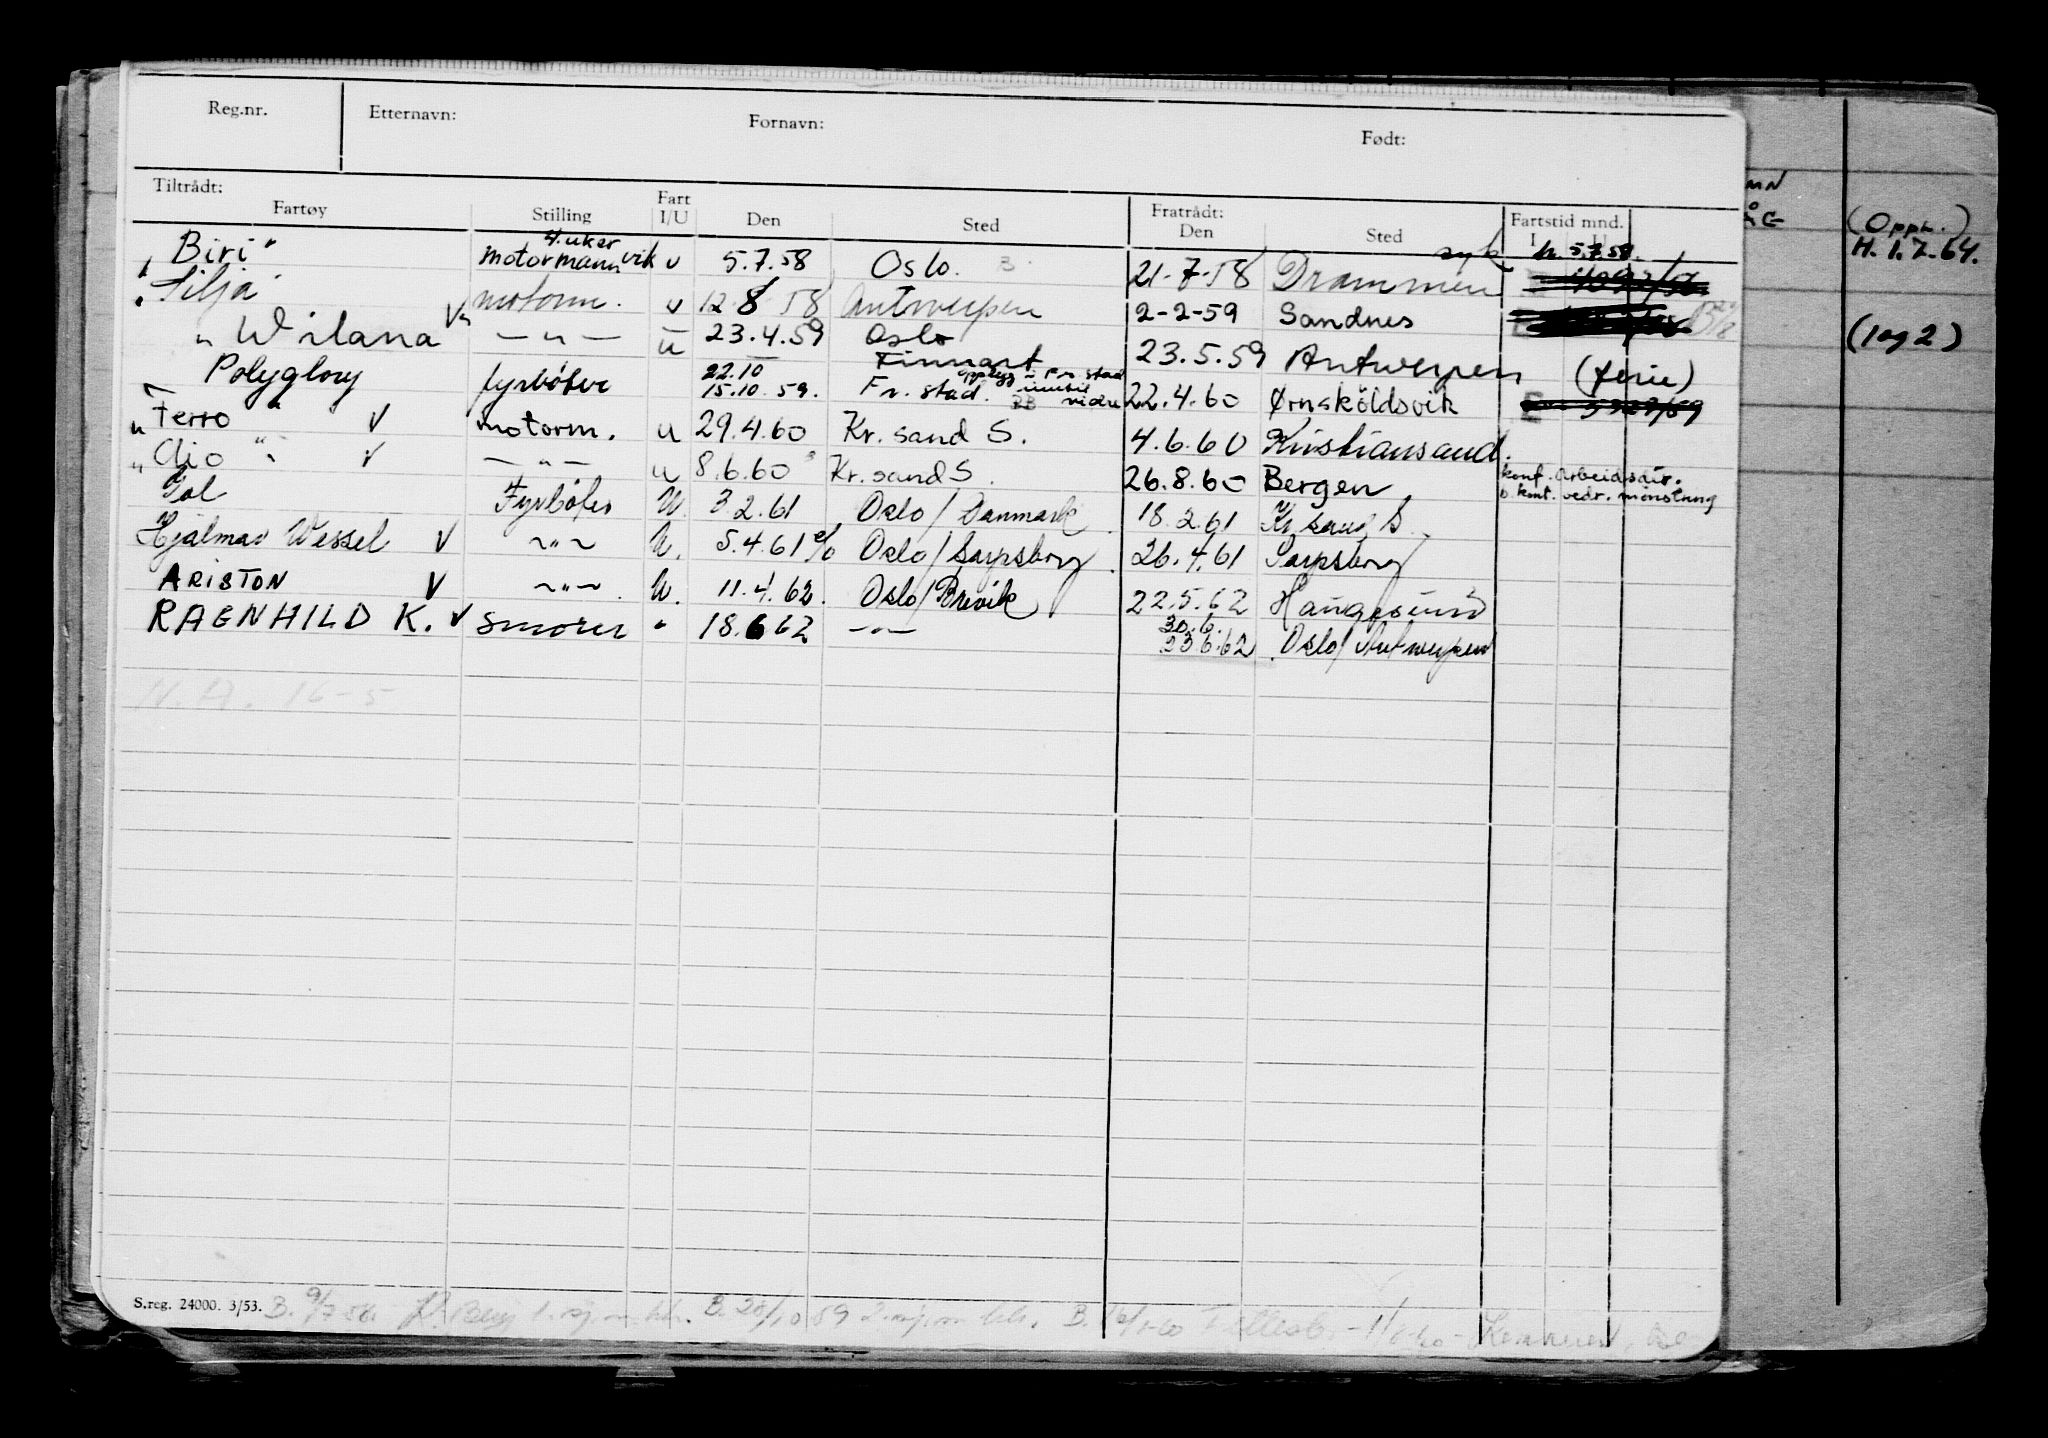 Reg.nr. Etternavn: Fornavn: Født:
Tiltrådt: Fartøy Stilling Fart I/U Den Sted Fratrådt: Den Sted Fartstid mnd. I U
" Biri " motormann 4 uker vik u 5.7.58 Oslo. 21-7-58 Drammen syk 5.7.58.
" Silja " motorm. u 12.8.58 Antwerpen 2-2-59 Sandnes
" Wilana V — " — u 23.4.59 Oslo 23.5.59 Antwerpen (ferie)
Polyglory fyrbøter 22.10 15.10.59. Finnart Fr. stad. opplegg i Fr. stad inntil videre 22.4.60 Ørnsköldsvik
" Ferro V motorm. u 29.4.60 Kr. sand S. 4.6.60 Kristiansand.
" Clio " V — " — u 8.6.60 Kr. sand S. 26.8.60 Bergen konf. Arbeidsdir. vedr. mønstring
Gol Fyrbøter U. 3.2.61 Oslo/Danmark 18.2.61 Kr. sand S.
Hjalmar Wessel V — " — U. 5.4.61 Oslo/Sarpsborg 26.4.61 Sarpsborg
ARISTON V — " — U. 11.4.62. Oslo/Brevik 22.5.62 Haugesund
RAGNHILD K. V Smører " 18.6 62 — " — 30.6. 23.6.62 Oslo/Antwerpen
N.A. 16-5
S.reg. 24000. 3/53.
(Opph.)
H. 1.7.64.
(leg 2)